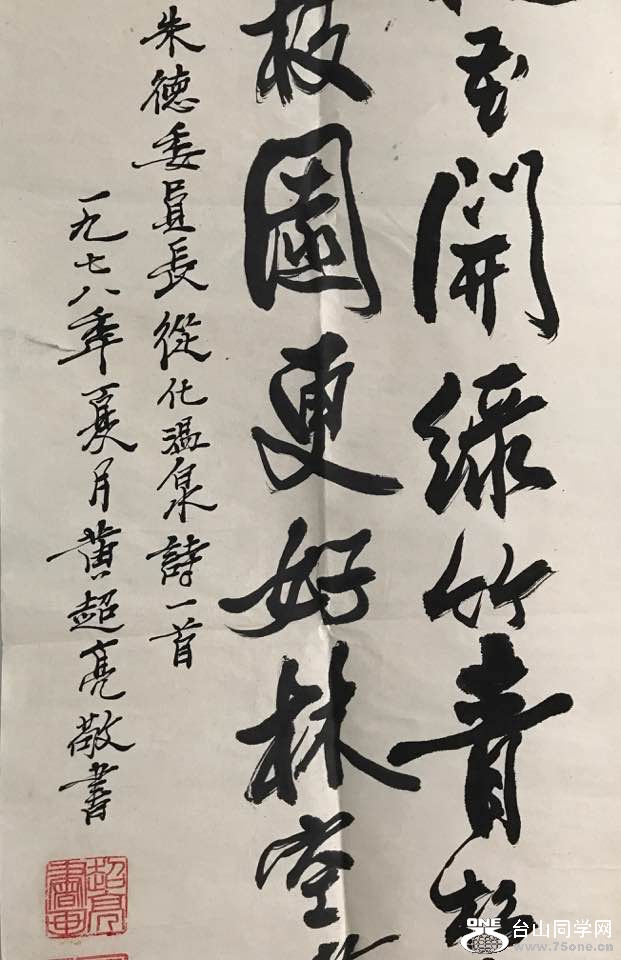 花開綠竹青松
園更好林
朱德委員長從化温泉詩一首
一九七八年夏月黄超亮敬書
超亮書画
ONE
台山同学网
www.75one.cn